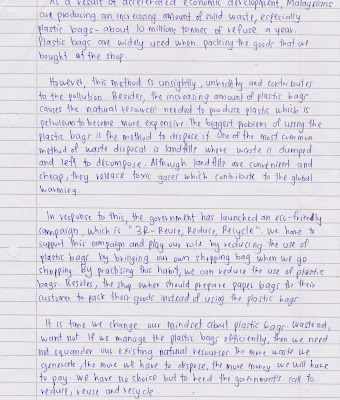 As a result of accelerated economic development, Malaysians
are producing an increasing amount of solid waste, especially
plastic bags - about 10 million tonnes of refuse a year.
Plastic bags are widely used when packing the goods that we
bought at the shop.
However, this method is unsightly, unhealthy and contributes
to the pollution. Besides, the increasing amount of plastic bags
causes the natural resources needed to produce plastic which is
petroleum to become more expensive. The biggest problem of using the
plastic bags is the method to dispose it. One of the most common
method of waste disposal is landfills where waste is dumped
and left to decompose. Although landfills are convenient and
cheap, they release toxic gases which contribute to the global
warming.
In response to this, the government has launched an eco-friendly
campaign, which is "3R - Reuse, Reduce, Recycle". We have to
support this campaign and play our role by reducing the use of
plastic bags by bringing our own shopping bag when we go
shopping. By practising this habit, we can reduce the use of plastic
bags. Besides, the shop owner should prepare paper bags for their
customer to pack their goods instead of using the plastic bags.
It is time we change our mindset about plastic bags. Waste not,
want not. If we manage the plastic bags efficiently, then we need
not squander our existing natural resources. The more waste we
generate, the more we have to dispose, the more money we will have
to pay. We have no choice but to heed the government's call to
reduce, reuse and recycle.